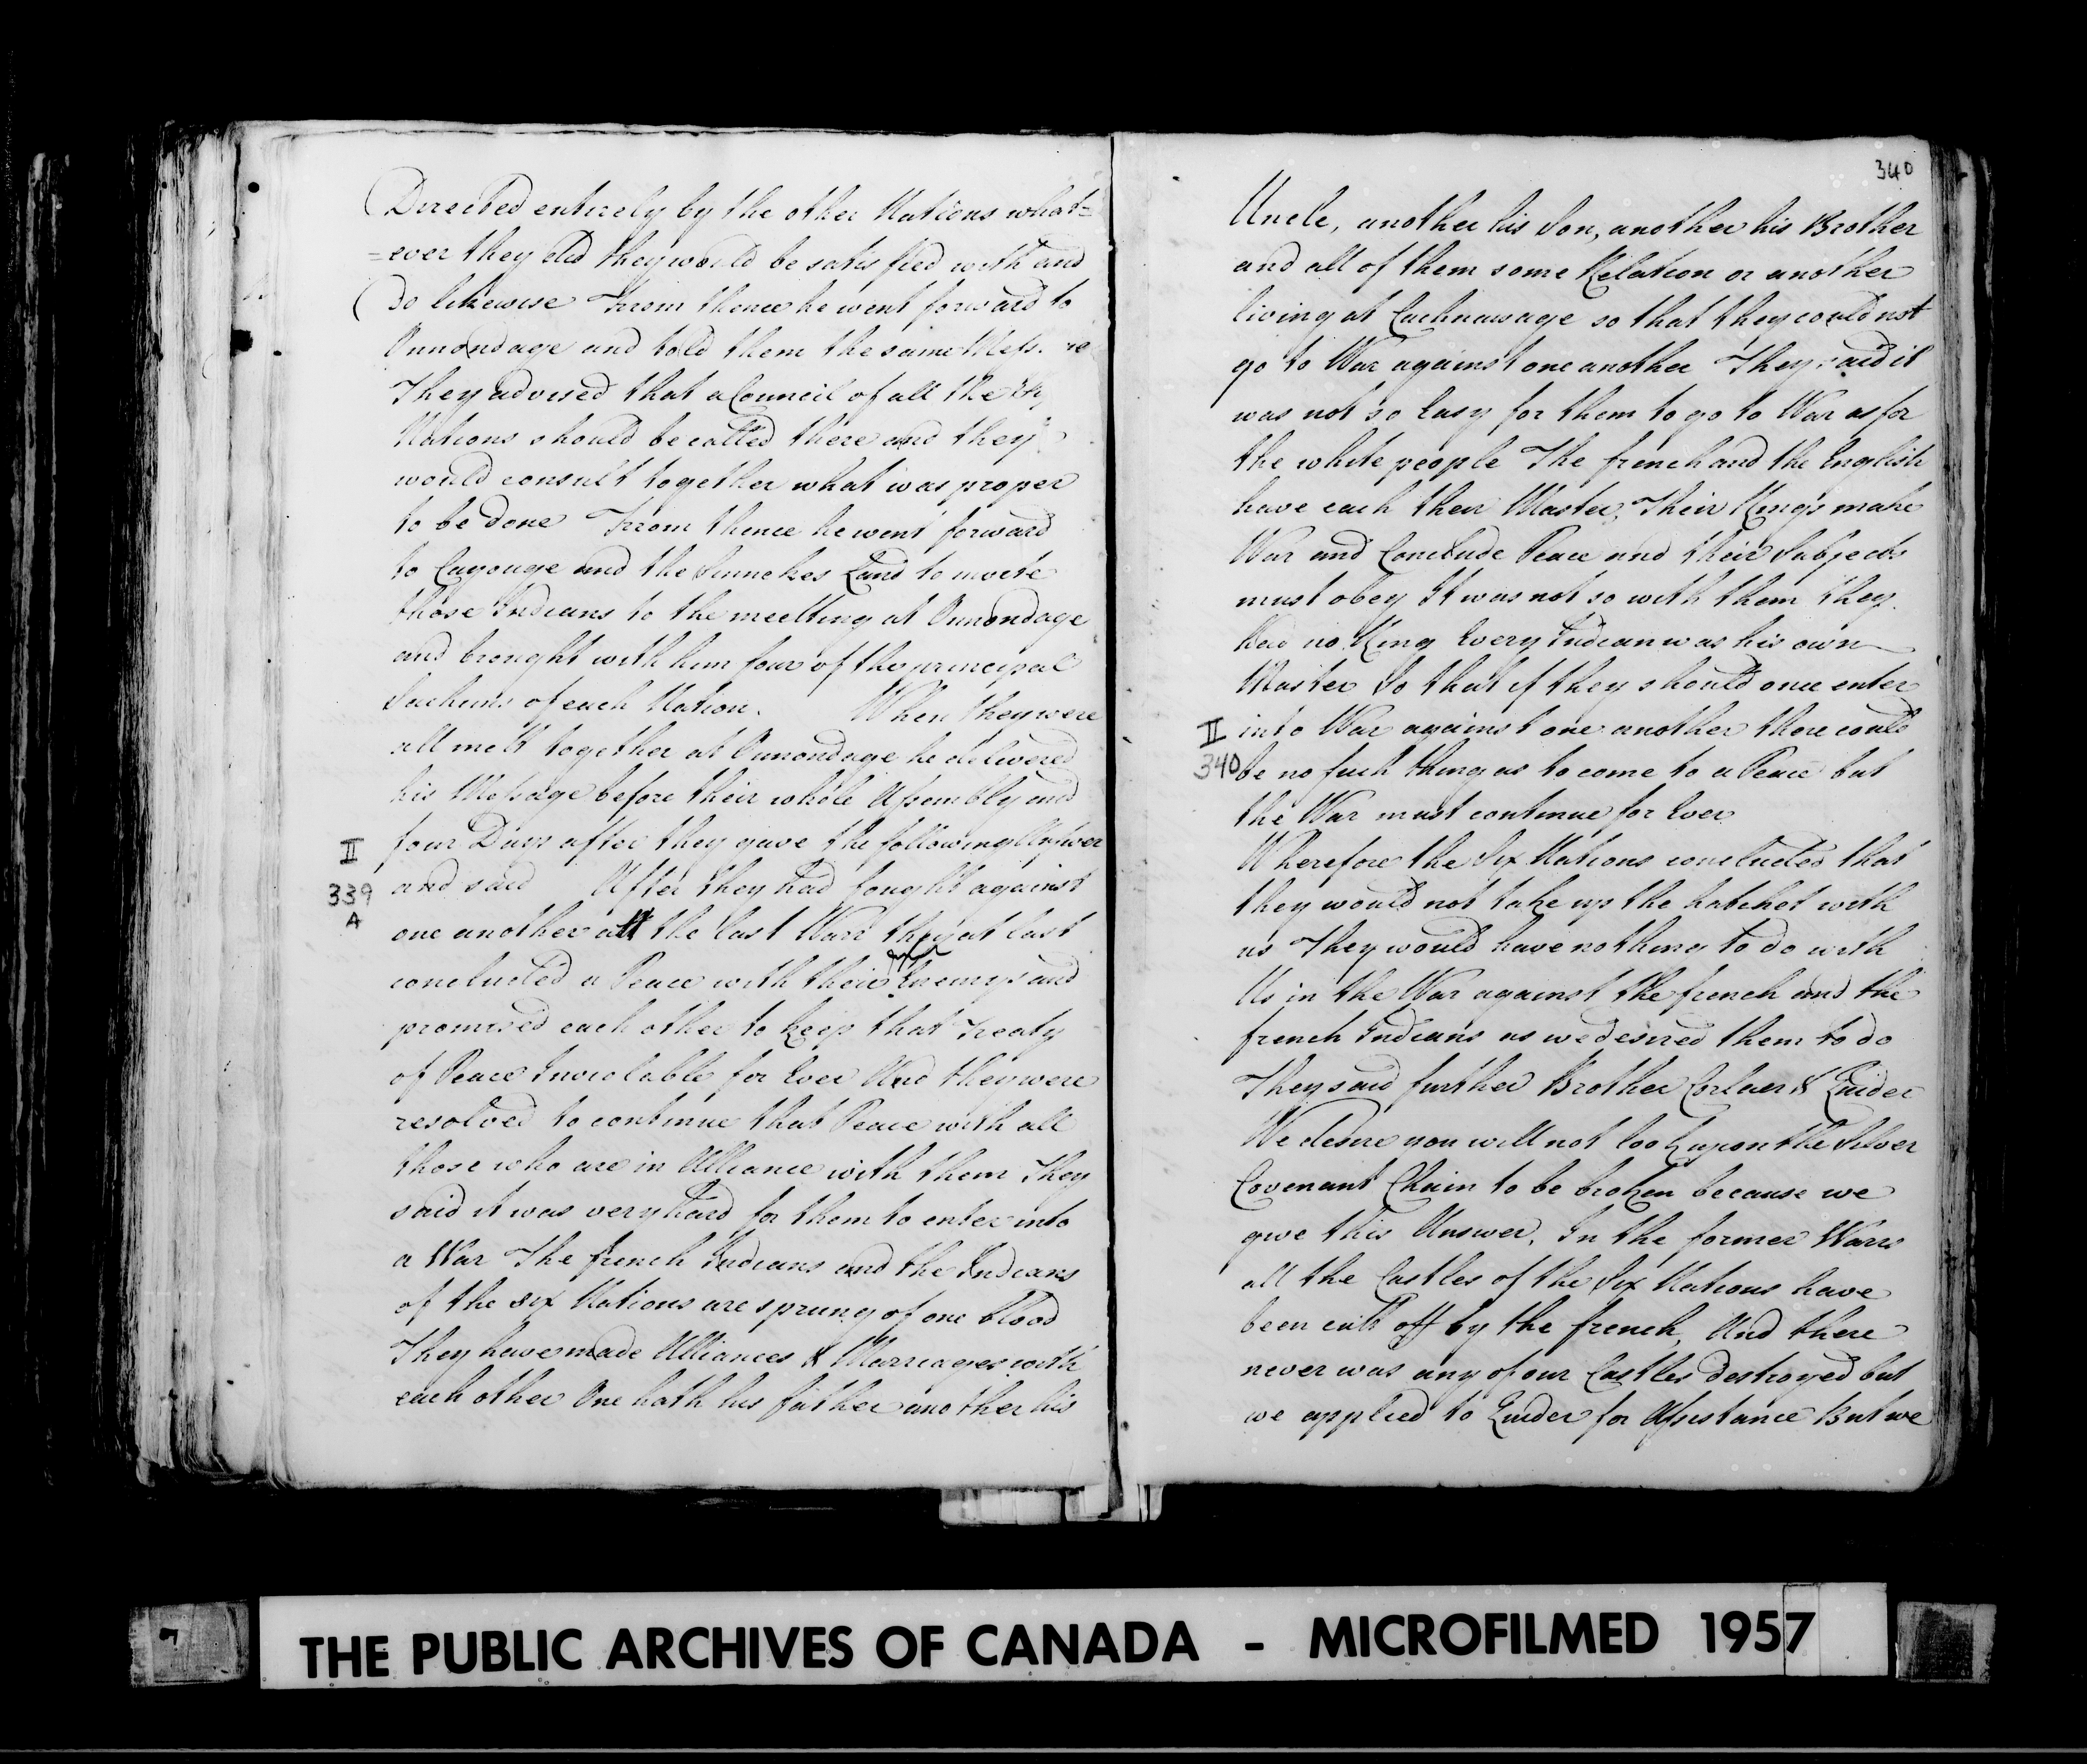 Directed entirely by the other Nations what=
=ever they did they would be satisfied with and
Do likewise From thence he went forward to
Onnondage and told them the same
They advised that a Council of all the
Nations should be called there and they
would consult together what was proper
to be done From thence he went forward
to Cayouge and the Sinnekes Land to invite
those Indians to the meetting at Onnondage
and brought with him four of the principal
Sachims of each Nation. When they were
all mett together at Onnondage he delivered
his Message before their whole Assembly and
II
four Days after they gave the following Answer
339
A
and said After they had fought against
one another att the last Warr they at last
concluded a Peace with their Enemys and
promised each other to keep that Treaty
of Peace Inviolable for Ever And they were
resolved to continue that Peace with all
those who are in Alliance with them They
said it was very hard for them to enter into
a War The french Indians and the Indians
of the six Nations are sprung of one blood
They have made Alliances & Marriages with
each other One hath his father another his
340
Uncle, another his Son, another his Brother
and all of them some Relation or another
living at Cachnawage so that they could not
go to War against one another They said it
was not so Easy for them to go to War as for
the white people The french and the English
have each their Master, Their Kings make
War and Conclude Peace and their Subjects
must obey It was not so with them they
had no King Every Indian was his own
Master So that if they should once enter
II
into War against one another there could
340
be no such thing as to come to a Peace but
the War must continue for Ever
Wherefore the Six Nations concluded that
they would not take up the hatchet with
us They would have nothing to do with
Us in the War against the french and the
french Indians as we desired them to do
They said further Brother Corlaer & Quider
We desire you will not look upon the Silver
Covenant Chain to be broken because we
give this Answer. In the former Warrs
all the Castles of the Six Nations have
been cutt off by the french, And there
never was any of our Castles destroyed but
we applied to Quider for Assistance But we
THE PUBLIC ARCHIVES OF CANADA - MICROFILMED 1957